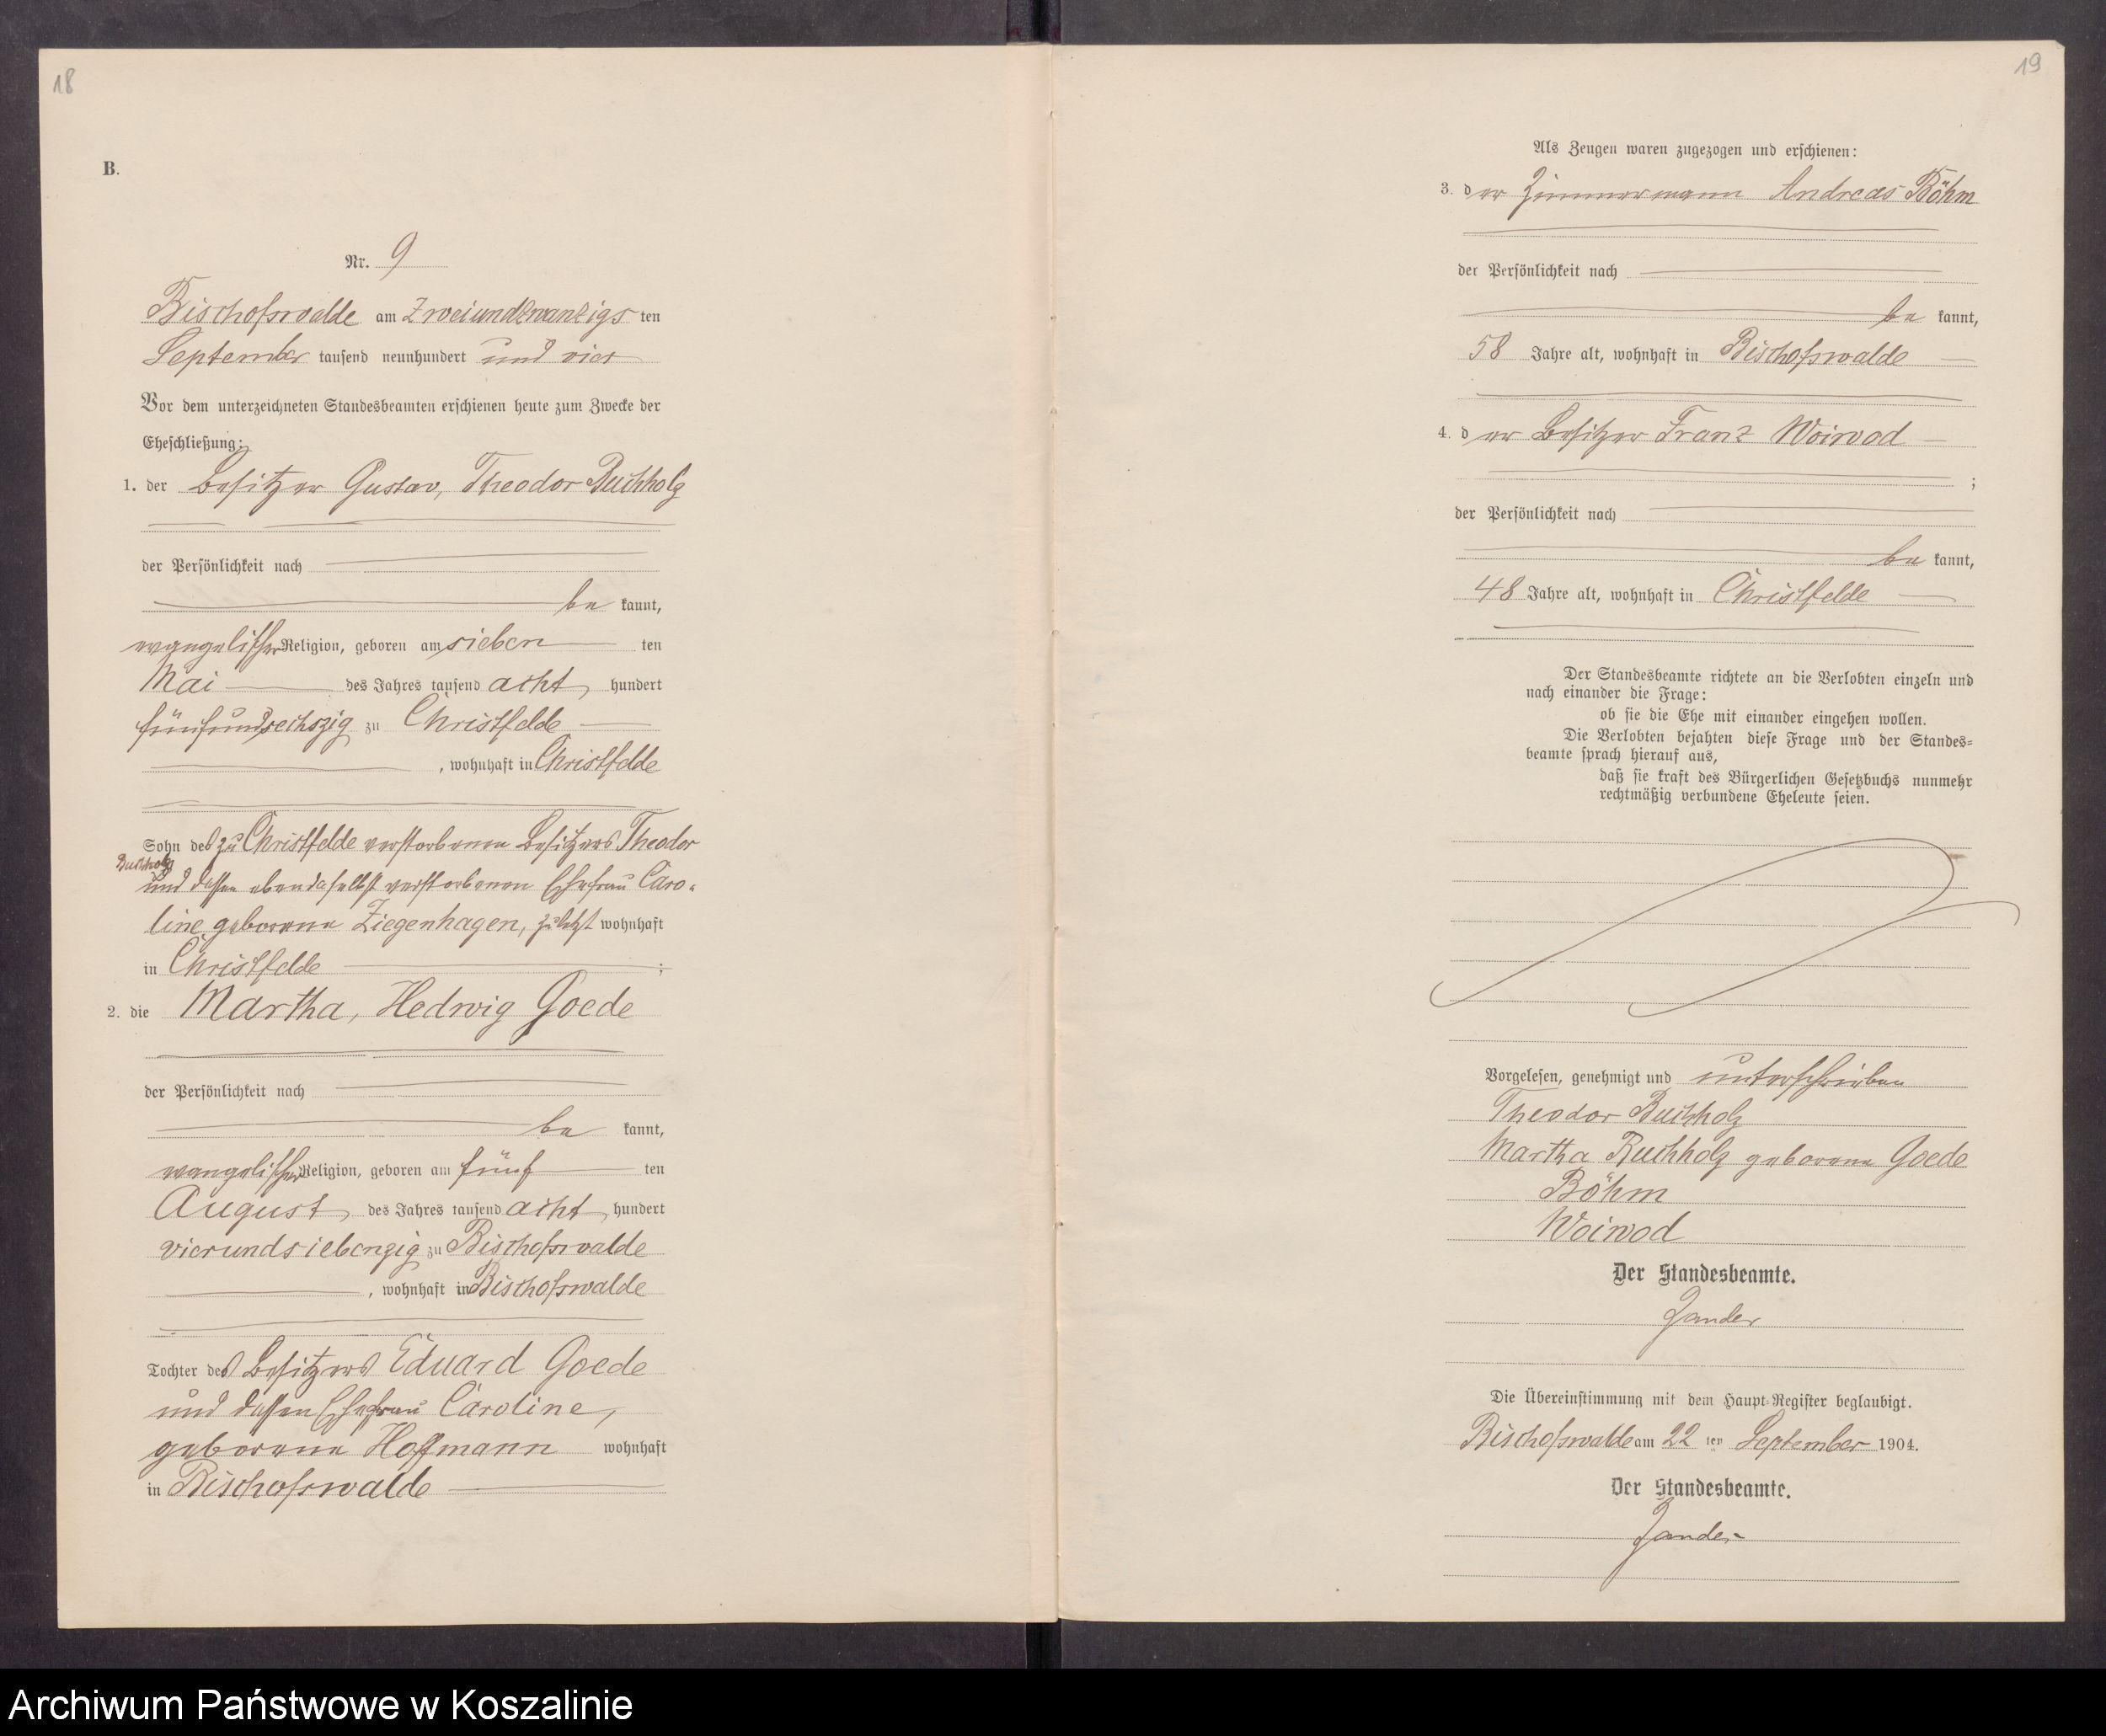 18
B.
Nr. 9
Bischofswalde am Zweiundzwanzigsten
September tausend neunhundert und vier
Vor dem unterzeichneten Standesbeamten erschienen heute zum Zwecke der
Eheschließung:
1. der Besitzer Gustav, Theodor Buchholz
der Persönlichkeit nach
be kannt,
evangelischer Religion, geboren am sieben ten
Mai des Jahres tausend acht hundert
fünfundsechszig zu Christfelde
, wohnhaft in Christfelde
Sohn des zu Christfelde verstorbenen Besitzers Theodor
Buchholz
und dessen ebendaselbst verstorbenen Ehefrau Caro-
line geborene Ziegenhagen, zuletzt wohnhaft
in Christfelde ;
2. die Martha, Hedwig Goede
der Persönlichkeit nach
be kannt,
evangelischer Religion, geboren am fünf ten
August des Jahres tausend acht hundert
vierundsiebenzig zu Bischofswalde
, wohnhaft in Bischofswalde
Tochter des Besitzers Eduard Goede
und dessen Ehefrau Caroline,
geborene Hoffmann wohnhaft
in Bischofswalde
19
Als Zeugen waren zugezogen und erschienen:
3. der Zimmermann Andreas Böhm
der Persönlichkeit nach
be kannt,
58 Jahre alt, wohnhaft in Bischofswalde
4. der Besitzer Franz Woiwod
;
der Persönlichkeit nach
be kannt,
48 Jahre alt, wohnhaft in Christfelde
Der Standesbeamte richtete an die Verlobten einzeln und
nach einander die Frage:
ob sie die Ehe mit einander eingehen wollen.
Die Verlobten bejahten diese Frage und der Standes-
beamte sprach hierauf aus,
daß sie kraft des Bürgerlichen Gesetzbuchs nunmehr
rechtmäßig verbundene Eheleute seien.
Vorgelesen, genehmigt und unterschrieben
Theodor Buchholz
Martha Buchholz geborene Goede
Böhm
Woiwod
Der Standesbeamte.
Zander
Die Übereinstimmung mit dem Haupt-Register beglaubigt.
Bischofswalde am 22 ten September 1904.
Der Standesbeamte.
Zander
Archiwum Państwowe w Koszalinie